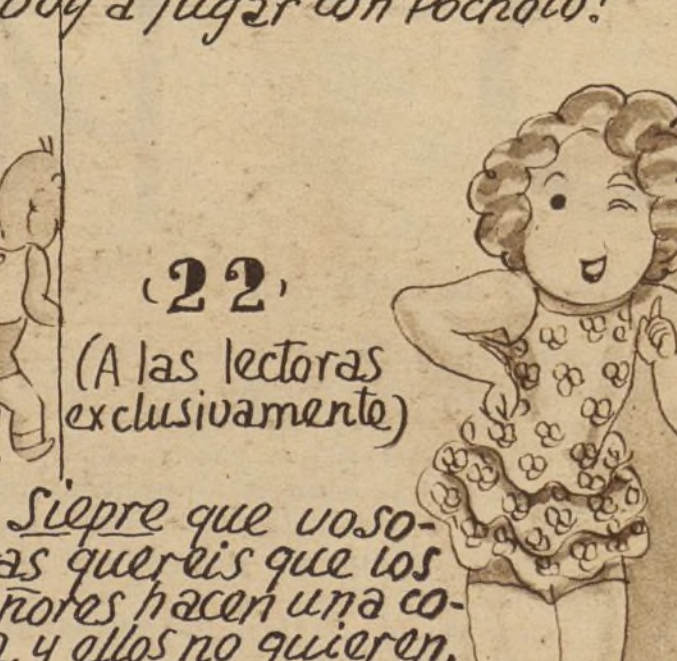 a jugar con Pocholo!
22
(A las lectoras
exclusivamente)
Siepre que voso-
quereis que los
hacen una co-
y ellos no quieren,